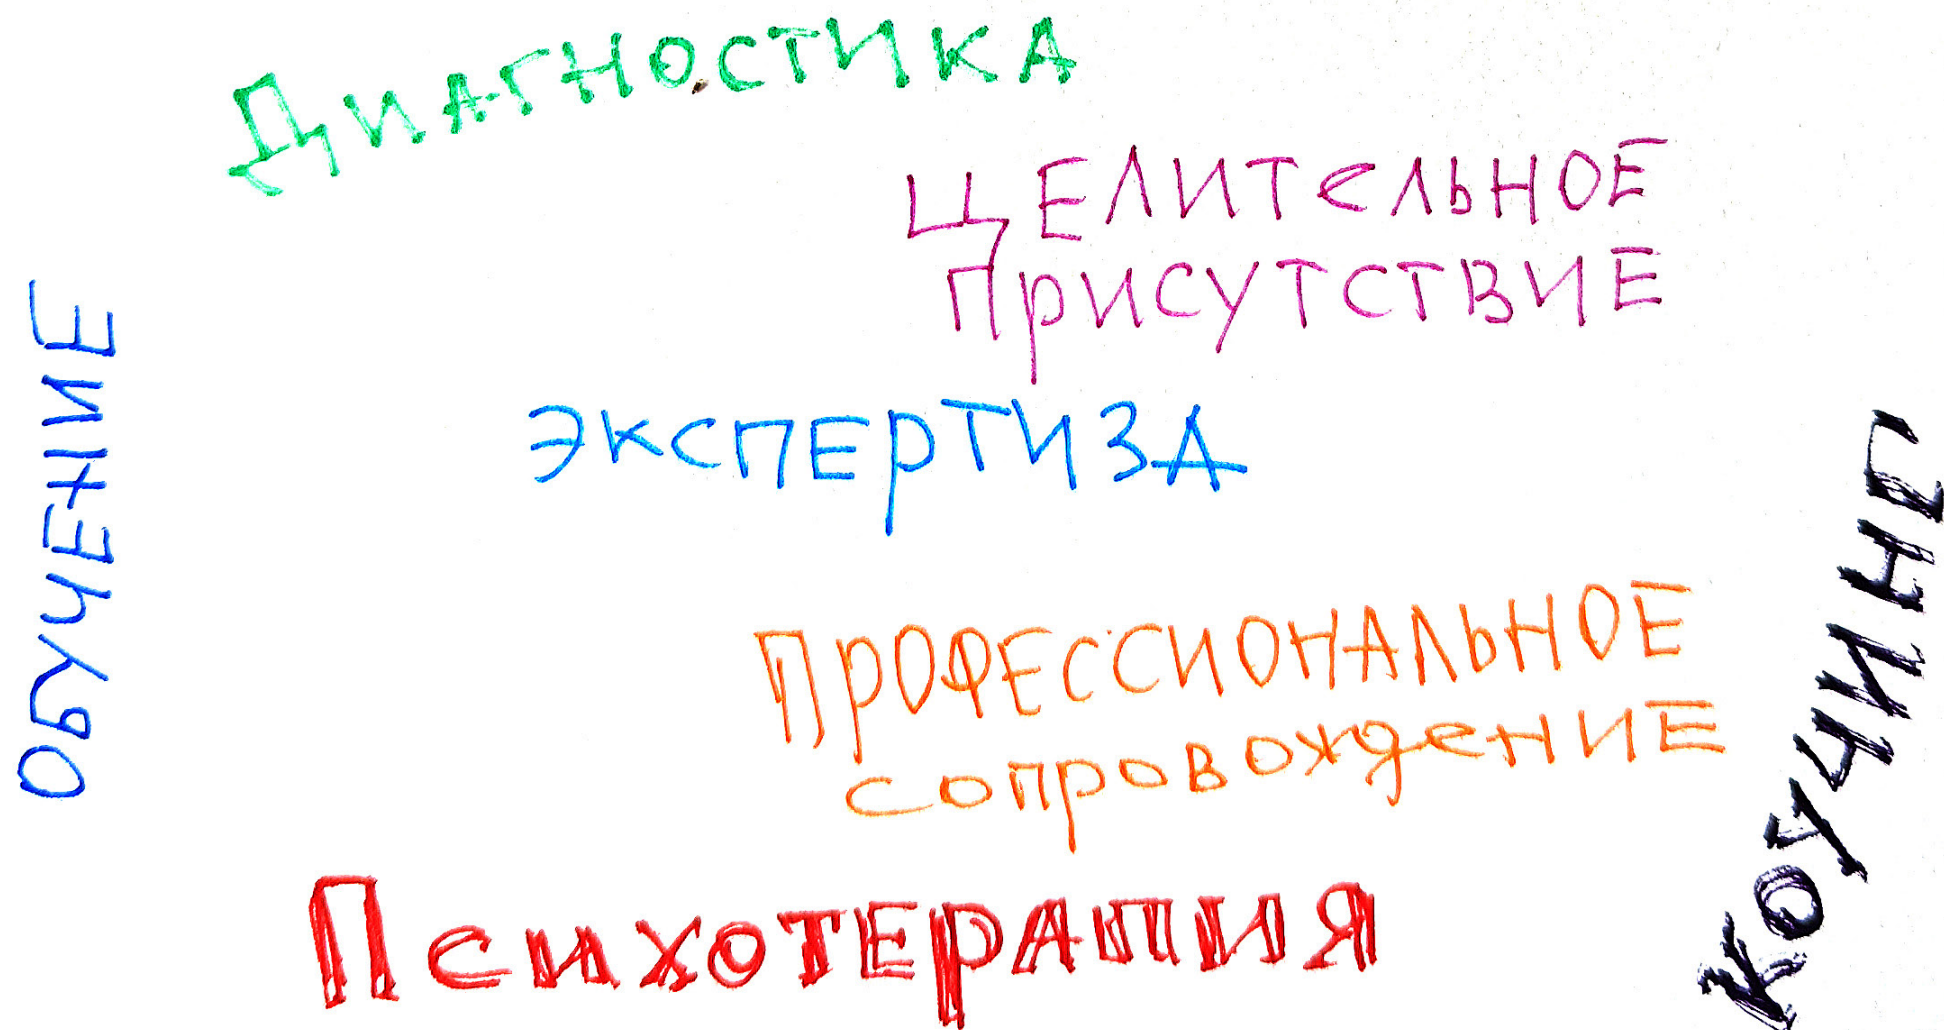 Диагностика
ЦЕЛИТЕЛЬНОЕ
ПРИСУТСТВИЕ
ОБУЧЕНИЕ
ЭКСПЕРТИЗА
КОУЧИНГ
ПРОФЕССИОНАЛЬНОЕ
сопровождение
Психотерапия